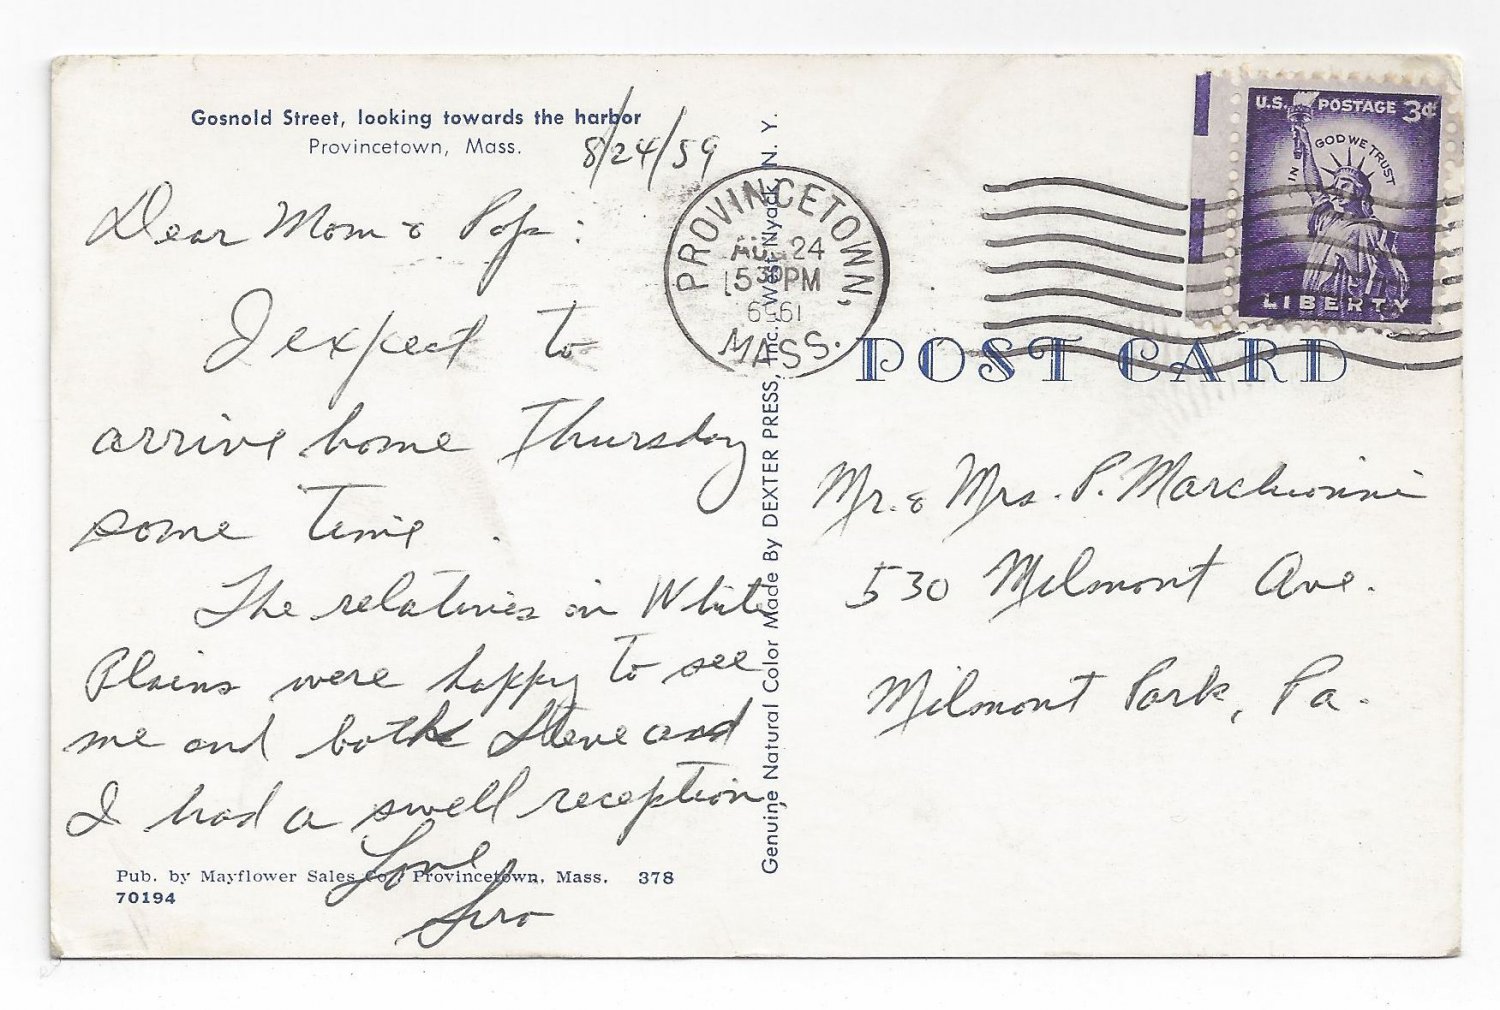 Gosnold Street, looking towards the harbor
Provincetown, Mass.
8/24/59
Dear Mom & Pop:
I expect to
arrive home Thursday
some time.
The relatives in White
Plains were happy to see
me and both Steve and
I had a swell reception.
Love
Pub. by Mayflower Sales Co., Provincetown, Mass. 378
70194
Genuine Natural Color Made By DEXTER PRESS, Inc. West Nyack, N. Y.
PROVINCETOWN,
AUG 24
530PM
MASS.
U.S. POSTAGE 3¢
IN GOD WE TRUST
LIBERTY
POST CARD
Mr. & Mrs. P. Marchionni
530 Milmont Ave.
Milmont Park, Pa.